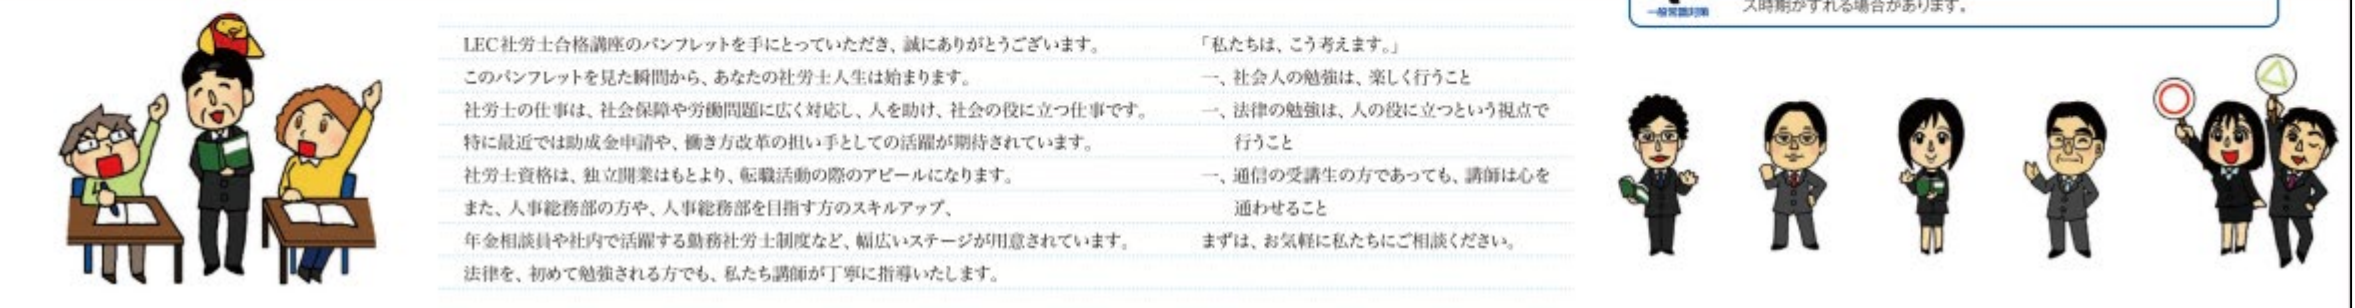 LEC社労士合格講座のパンフレットを手にとっていただき、誠にありがとうございます。
このパンフレットを見た瞬間から、あなたの社労士人生は始まります。
社労士の仕事は、社会保障や労働問題に広く対応し、人を助け、社会の役に立つ仕事です。
特に最近では助成金申請や、働き方改革の担い手としての活躍が期待されています。
社労士資格は、独立開業はもとより、転職活動の際のアピールになります。
また、人事総務部の方や、人事総務部を目指す方のスキルアップ、
年金相談員や社内で活躍する勤務社労士制度など、幅広いステージが用意されています。
法律を、初めて勉強される方でも、私たち講師が丁寧に指導いたします。
「私たちは、こう考えます。」
一、社会人の勉強は、楽しく行うこと
一、法律の勉強は、人の役に立つという視点で
行うこと
一、通信の受講生の方であっても、講師は心を
通わせること
まずは、お気軽に私たちにご相談ください。
一般常識対策
ス時期がずれる場合があります。